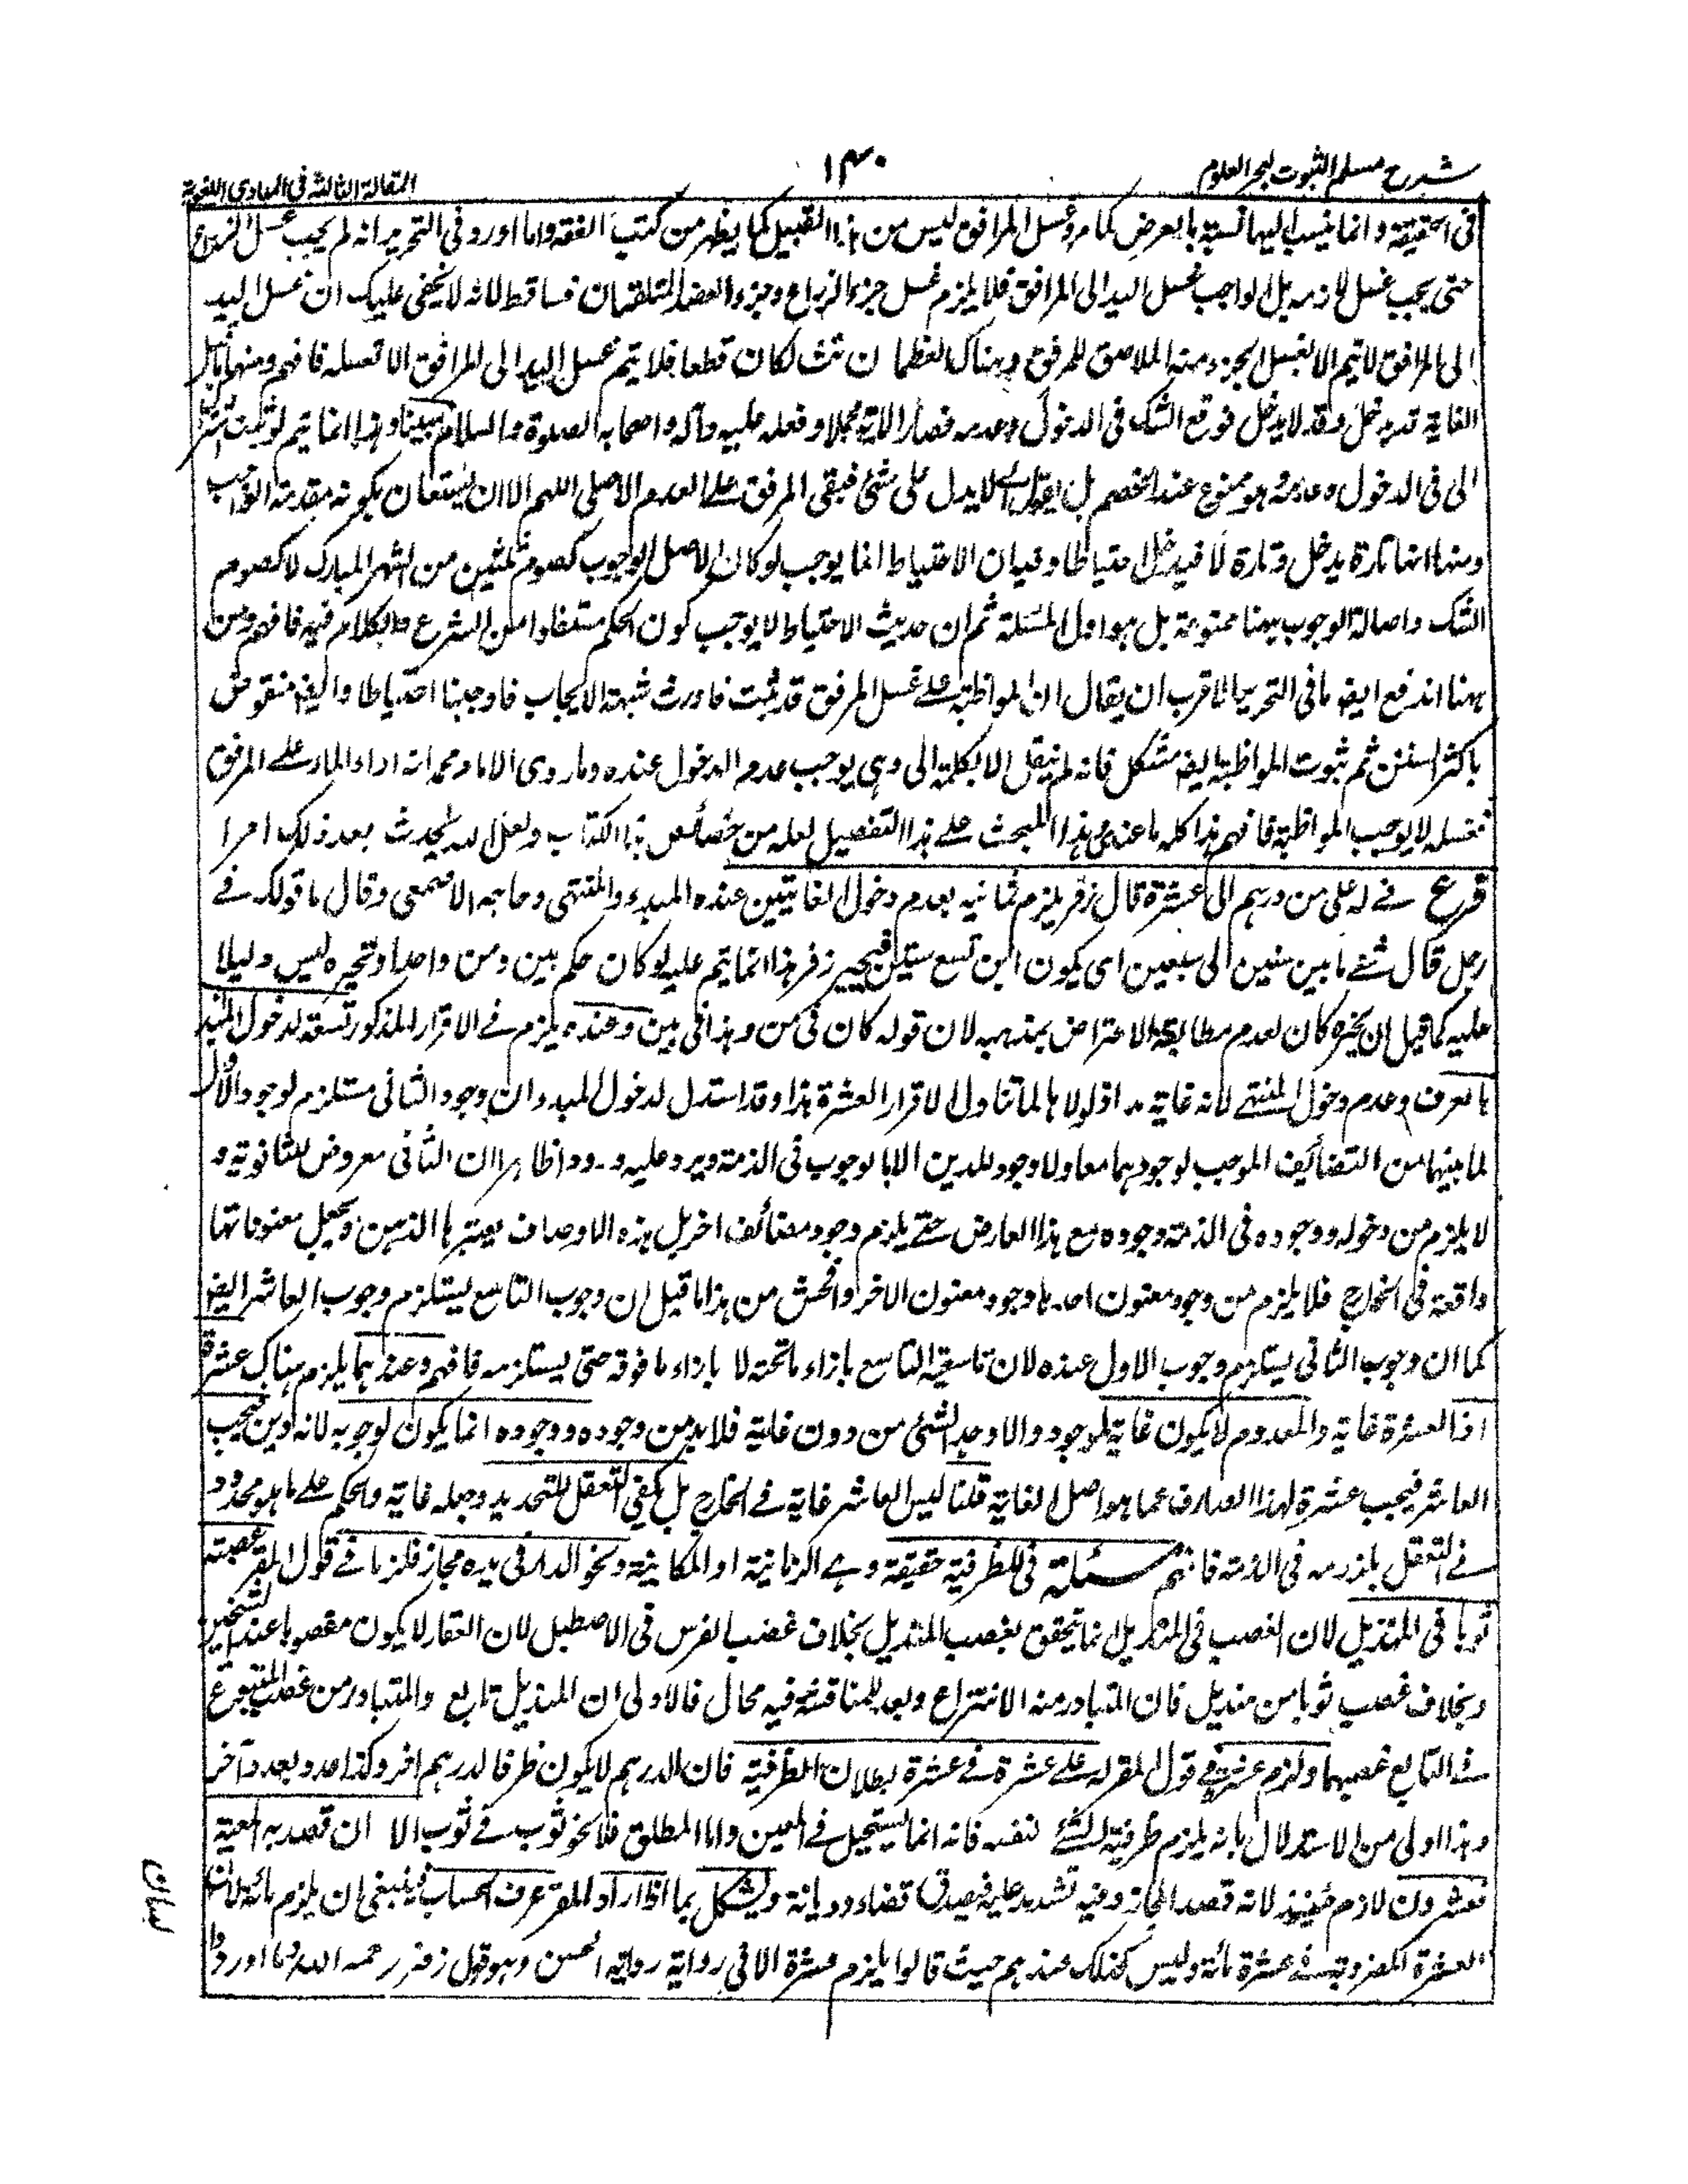 شرح مسلم الثبوت لبحر العلوم
١٤٠
المقالة الثالثة فى المبادى اللغوية
فى الحقيقة وانما ينسب اليها نسبة بالعرض كما مر وغسل المرافق ليس من هذا القبيل كما يظهر من كتب الفقه واما اورد فى التحرير انه لم يجب غسل الذراع
حتى يجب غسل لازمه بل الواجب غسل اليد الى المرافق فلا يلزم غسل جزء الذراع وجزء العضد المتلقيان فساقط لانه لا يخفى عليك ان غسل اليد
الى المرافق لا يتم الا بغسل الجزء منه الملاصق للمرفق وهناك العظمان كان قطعا فلا يتم غسل اليد الى المرافق الا بغسله فافهم ومنها ما قيل
الغاية قد يدخل وقد لا يدخل فوقع الشك فى الدخول وعدمه فصار الآية مجملا وفعله عليه وآله واصحابه الصلوة والسلام مبينا وهذا انما يتم لو ثبت اشتراك
الى فى الدخول وعدمه وهو ممنوع عند الخصم بل يقول الى لا يدل على شئ فبقى المرفق على العدم الاصلى اللهم الا ان يستعان بكونه مقدمة الواجب
ومنها انها تارة يدخل وتارة لا فيدخل احتياطا وفيه ان الاحتياط انما يوجب لو كان الاصل الوجوب كصوم ثلثين من الشهر المبارك لا كصوم
الشك واصالة الوجوب ههنا ممنوعة بل هو اول المسئلة ثم ان حديث الاحتياط لا يوجب كون الحكم مستفادا من الشرع والكلام فيه فافهم ومن
ههنا اندفع ايضا ما فى التحرير الاقرب ان يقال ان المواظبة على غسل المرفق قد ثبت فاورث شبهة الايجاب فاوجبنا احتياطا وايضا منقوض
باكثر السنن ثم ثبوت المواظبة ايضا مشكل فانه لم ينقل الا بكلمة الى وهى يوجب عدم الدخول عنده وما روى الامام محمد انه ادار الماء على المرفق
فغسله لا يوجب المواظبة فافهم هذا كله ما عندى وهذا المبحث على هذا التفصيل لعله من خصائص هذا الكتاب ولعل الله يحدث بعد ذلك امرا
فرع فى له على من درهم الى عشرة قال زفر يلزم ثمانيه بعدم دخول الغايتين عنده المبدء والمنتهى وحاجه الاصمعى وقال ما قولك فى
رجل قال سنى ما بين ستين الى سبعين اى يكون ابن تسع سنين فتحير زفر هذا انما يتم عليه لو كان حكم بين ومن واحدا وتحيره ليس دليلا
عليه كما قيل ان تحيره كان لعدم مطابقة الاعتراض بمذهبه لان قوله كان فى من وهذا فى بين وعنده يلزم فى الاقرار المذكور تسعة لدخول المبدء
بالعرف وعدم دخول المنتهى لانه غاية مد اذ لولاها لما تناول الاقرار العشرة هذا وقد استدل لدخول المبدء ان وجود الثانى مستلزم لوجود الاول
لما بينهما من التضائف الموجب لوجودهما معا ولا وجود للدين الا بالوجوب فى الذمة ويرد عليه ورودا ظاهرا ان الثانى معروض للثانوية و
لا يلزم من دخوله ووجوده فى الذمة وجوده مع هذا العارض حتى يلزم وجود مضائف اخر بل هذه الاوصاف يعتبرها الذهن ويجعل معنوناتها
واقعة فى الخارج فلا يلزم من وجود معنون احدها وجود معنون الاخر وافحش من هذا ما قيل ان وجوب التاسع يستلزم وجوب العاشر ايضا
كما ان وجوب الثانى يستلزم وجوب الاول عنده لان تاسعية التاسع بازاء ما تحته لا بازاء ما فوقه حتى يستلزمه فافهم وعندهما يلزم هناك عشرة
اذ العشرة غاية والمعدوم لا يكون غاية لموجود والا وجد الشئ من دون غاية فلا بد من وجوده ووجوده انما يكون لوجوبه لانه دين فيجب
العاشر فيجب عشرة لهذا الصارف عما هو اصل الغاية قلنا ليس العاشر غاية فى الخارج بل يكفى التعقل للتحديد وجعله غاية والحكم على ما هو محدود
فى التعقل يلزمه فى الذمة فافهم مسئلة فى للظرفية حقيقة وهى الزمانية او المكانية ونحو الدار فى يده مجاز فلزما فى قول المقر غصبته
ثوبا فى المنديل لان الغصب فى المنديل انما يتحقق بغصب المنديل بخلاف غصب الفرس فى الاصطبل لان العقار لا يكون مغصوبا عند الشيخين
وبخلاف غصب ثوبا من منديل فان المتبادر منه الانتزاع وبعد للمناقشة فيه مجال فالاولى ان المنديل تابع والمتبادر من غصب المتبوع
فى التابع غصبهما ولزم عشرة فى قول المقر له على عشرة فى عشرة لبطلان الظرفية فان الدرهم لا يكون ظرفا لدرهم اخر وكذا عدد بعدد آخر
وهذا اولى من الاستدلال بانه يلزم ظرفية الشئ لنفسه فانه انما يستحيل فى المعين واما المطلق فلا نحو ثوب فى ثوب الا ان قصد به المعية
فعشرون لازم حينئذ لانه قصد المجاز وفيه تشديد عليه فيصدق قضاء وديانة ويشكل بما اذا اراد المقر عرف الحساب فينبغى ان يلزم مائة لان
العشرة المضروبة فى عشرة مائة وليس كذلك عندهم حيث قالوا يلزم عشرة الا فى رواية رواية الحسن وهو قول زفر رحمه الله وما اورد